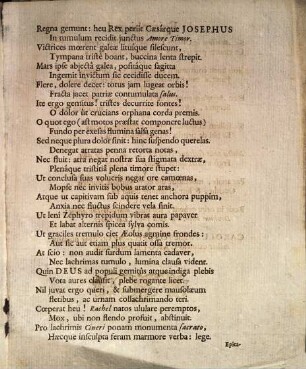 Regna gemunt: heu Rex periit Cæsarque JOSEPHUS
In tumulum recidit junctus Amore Timor.
Victrices mœrent galeæ lituique silescunt,
Tympana triste boant, buccina lenta strepit.
Mars ipse abjectâ galeâ, positâque sagitta
Ingemit invictum sic cecidisse ducem.
Flere, dolere decet: totus jam lugeat orbis!
Fracta jacet patriæ contumulata salus.
Ite ergo gemitus! tristes decurrite fontes!
O dolor ût crucians orphana corda premis.
O quot ego (ast motus præstat componere luctus)
Fundo per exesas flumina salsa genas!
Sed neque plura dolor sinit: hinc suspendo querelas.
Denegat atratas penna retorta notas,
Nec fluit: atra negat nostræ sua stigmata dextræ,
Plenáque tristitiâ plena timore stupet:
Ut conclusa suas volucris negat ore camœnas,
Mopse nec invitis bobus arator aras,
Atque ut captivam sub aquis tenet anchora puppim,
Anxia nec fluctus scindere vela sinit.
Ut leni Zéphyro trepidum vibrat aura papaver
Et labat alternis spicea sylva comis.
Ut graciles tremulo ciet Æolus agmine frondes:
Aut sic aut etiam plus quatit ossa tremor.
At scio: non audit surdum lamenta cadaver,
Nec lachrimas tumulo, lumina clausa vident.
Quin DEUS ad populi gemitus atque indiga plebis
Vota aures clausit, plebe rogante licet.
Nil juvat ergo quæri, & submergere mausolæum
fletibus, ac urnam collachrimando teri.
Cerperat heu! Rahel natos ululare peremptos,
Mox, ubi non flendo profuit, abstinuit.
Pro lachrimis Cineri ponam monumenta sacrato,
Hæcque insculpta feram marmore verba: lege.
Epita-